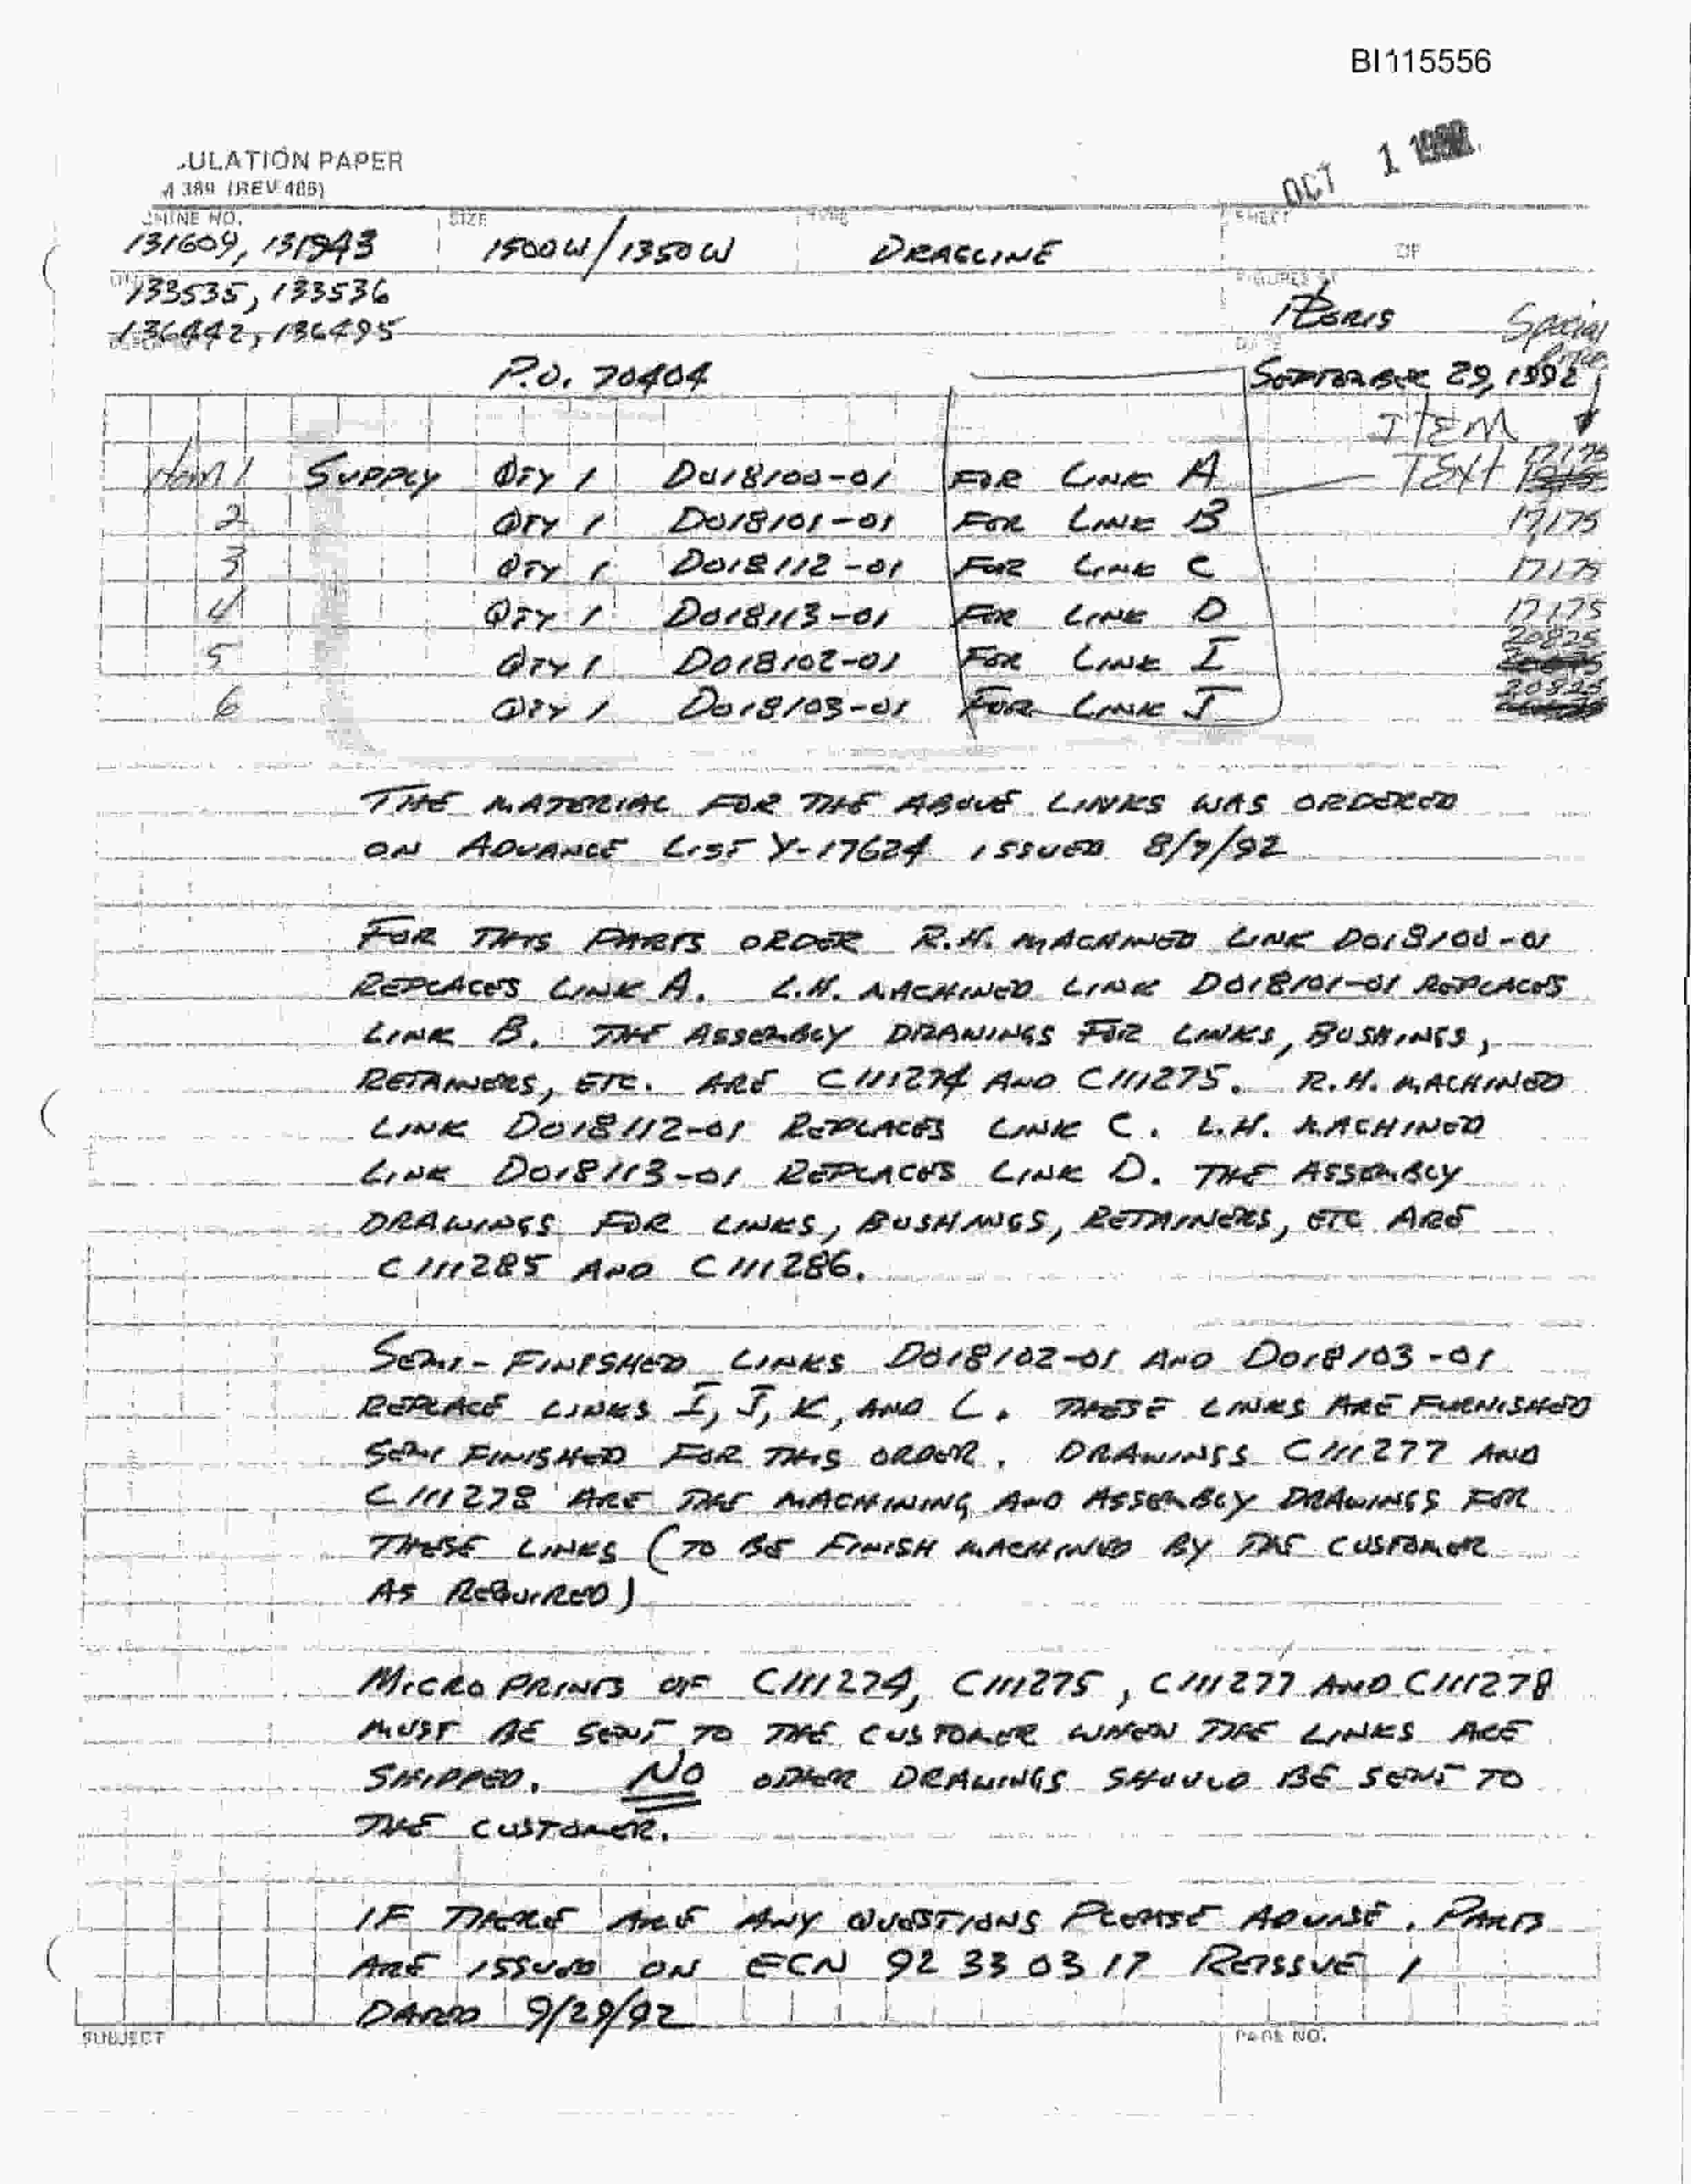 BI115556
OCT 1
ULATION PAPER
A 389 (REV 486)
HINE NO. SIZE TYPE SHEET
131609, 131943 1500W/1350W DRAGLINE OF
133535, 133536 FIGURES BY
136442, 136495 Special
DATE
P.O. 70404 SEPTEMBER 29, 1992
ITEM
Item 1 SUPPLY QTY 1 D018100-01 FOR LINK A TEXT 17175
2 QTY 1 D018101-01 FOR LINK B 17175
3 QTY 1 D018112-01 FOR LINK C 17175
4 QTY 1 D018113-01 FOR LINK D 17175
5 QTY 1 D018102-01 FOR LINK I 20825
6 QTY 1 D018103-01 FOR LINK J 20825
THE MATERIAL FOR THE ABOVE LINKS WAS ORDERED
ON ADVANCE LIST Y-17624 ISSUED 8/7/92
FOR THIS PARTS ORDER R.H. MACHINED LINK D018100-01
REPLACES LINK A. L.H. MACHINED LINK D018101-01 REPLACES
LINK B. THE ASSEMBLY DRAWINGS FOR LINKS, BUSHINGS,
RETAINERS, ETC. ARE C111274 AND C111275. R.H. MACHINED
LINK D018112-01 REPLACES LINK C. L.H. MACHINED
LINK D018113-01 REPLACES LINK D. THE ASSEMBLY
DRAWINGS FOR LINKS, BUSHINGS, RETAINERS, ETC ARE
C111285 AND C111286.
SEMI-FINISHED LINKS D018102-01 AND D018103-01
REPLACE LINKS I, J, K, AND L. THESE LINKS ARE FURNISHED
SEMI FINISHED FOR THIS ORDER. DRAWINGS C111277 AND
C111278 ARE THE MACHINING AND ASSEMBLY DRAWINGS FOR
THESE LINKS (TO BE FINISH MACHINED BY THE CUSTOMER
AS REQUIRED)
MICRO PRINTS OF C111274, C111275, C111277 AND C111278
MUST BE SENT TO THE CUSTOMER WHEN THE LINKS ARE
SHIPPED. NO OTHER DRAWINGS SHOULD BE SENT TO
THE CUSTOMER.
IF THERE ARE ANY QUESTIONS PLEASE ADVISE. PARTS
ARE ISSUED ON ECN 92 33 03 17 REISSUE 1
DATED 9/29/92
SUBJECT PAGE NO.